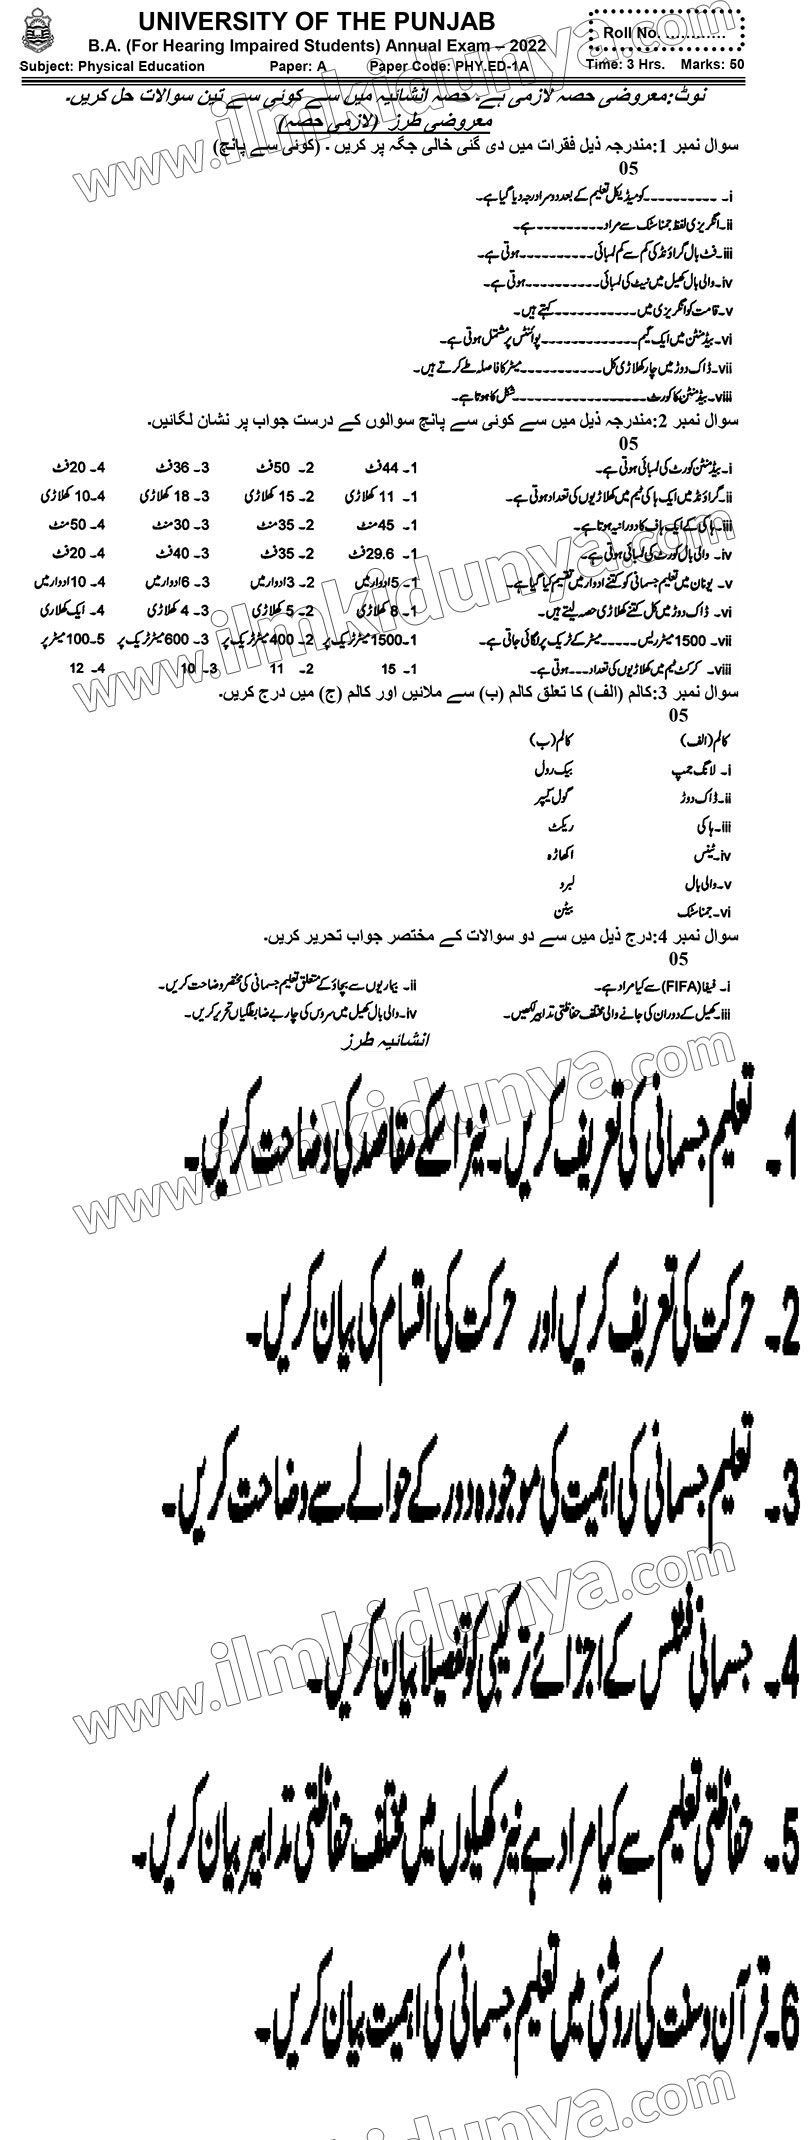 UNIVERSITY OF THE PUNJAB
B.A. (For Hearing Impaired Students) Annual Exam – 2022
Roll No. ............
Subject: Physical Education Paper: A Paper Code: PHY.ED-1A Time: 3 Hrs. Marks: 50
نوٹ:معروضی حصہ لازمی ہے، حصہ انشائیہ میں سے کوئی سے تین سوالات حل کریں۔
معروضی طرز (لازمی حصہ)
سوال نمبر 1:مندرجہ ذیل فقرات میں دی گئی خالی جگہ پر کریں ۔ (کوئی سے پانچ)
05
i۔ ----------کو میڈیکل تعلیم کے بعد دوسرا درجہ دیا گیا ہے۔
ii۔انگریزی لفظ جمناسٹک سے مراد---------ہے۔
iii۔فٹ بال گراؤنڈ کی کم سے کم لمبائی----------ہوتی ہے۔
iv۔والی بال کھیل میں نیٹ کی لمبائی----------ہوتی ہے۔
v۔قامت کو انگریزی میں-----------کہتے ہیں۔
vi۔بیڈمنٹن میں ایک گیم-------------پوائنٹس پر مشتمل ہوتی ہے۔
vii۔ڈاک دوڑ میں چار کھلاڑی کل-----------میٹر کا فاصلہ طے کرتے ہیں۔
viii۔بیڈمنٹن کا کورٹ------------------شکل کا ہوتا ہے۔
سوال نمبر 2:مندرجہ ذیل میں سے کوئی سے پانچ سوالوں کے درست جواب پر نشان لگائیں۔
05
i۔بیڈمنٹن کورٹ کی لمبائی ہوتی ہے۔ 1۔ 44فٹ 2۔ 50فٹ 3۔ 36فٹ 4۔ 20فٹ
ii۔گراؤنڈ میں ایک ہاکی ٹیم میں کھلاڑیوں کی تعداد ہوتی ہے۔ 1۔ 11 کھلاڑی 2۔ 15 کھلاڑی 3۔ 18 کھلاڑی 4۔10 کھلاڑی
iii۔ہاکی کے ایک ہاف کا دورانیہ ہوتا ہے۔ 1۔ 45منٹ 2۔ 35منٹ 3۔ 30منٹ 4۔ 50منٹ
iv۔ والی بال کورٹ کی لمبائی ہوتی ہے۔ 1۔ 29.6فٹ 2۔ 35فٹ 3۔ 40فٹ 4۔ 20فٹ
v۔ یونان میں تعلیم جسمانی کو کتنے ادوار میں تقسیم کیا گیا ہے۔ 1۔ 5ادوار میں 2۔ 3ادوار میں 3۔ 6ادوار میں 4۔ 10ادوار میں
vi۔ ڈاک دوڑ میں کل کتنے کھلاڑی حصہ لیتے ہیں۔ 1۔ 8 کھلاڑی 2۔ 5 کھلاڑی 3۔ 4 کھلاڑی 4۔ ایک کھلاڑی
vii۔ 1500 میٹر ریس-----میٹر کے ٹریک پر لگائی جاتی ہے۔ 1۔1500میٹر ٹریک پر 2۔ 400میٹر ٹریک پر 3۔ 600میٹر ٹریک پر 5۔100میٹر پر
viii۔ کرکٹ ٹیم میں کھلاڑیوں کی تعداد---ہوتی ہے۔ 1۔ 15 2۔ 11 3۔ 10 4۔ 12
سوال نمبر 3:کالم (الف) کا تعلق کالم (ب) سے ملائیں اور کالم (ج) میں درج کریں۔
05
کالم(الف) کالم(ب)
i۔ لانگ جمپ بیک رول
ii۔ڈاک دوڑ گول کیپر
iii۔ہاکی ریکٹ
iv۔ٹینس اکھاڑہ
v۔والی بال لبرو
vi۔جمناسٹک بیٹن
سوال نمبر 4:درج ذیل میں سے دو سوالات کے مختصر جواب تحریر کریں۔
05
i۔ فیفا(FIFA) سے کیا مراد ہے۔ ii۔ بیماریوں سے بچاؤ کے متعلق تعلیم جسمانی کی مختصر وضاحت کریں۔
iii۔کھیل کے دوران کی جانے والی مختلف حفاظتی تدابیر لکھیں۔ iv۔والی بال کھیل میں سروس کی چار بے ضابطگیاں تحریر کریں۔
انشائیہ طرز
1۔ تعلیم جسمانی کی تعریف کریں۔نیز اسکے مقاصد کی وضاحت کریں۔
2۔ حرکت کی تعریف کریں اور حرکت کی اقسام کی بیان کریں۔
3۔ تعلیم جسمانی کی اہمیت کی موجودہ دور کے حوالے سے وضاحت کریں۔
4۔ جسمانی فٹنس کے اجزائے ترکیبی کو تفصیلا بیان کریں۔
5۔ حفاظتی تعلیم سے کیا مراد ہے نیز کھیلوں میں مختلف حفاظتی تدابیر بیان کریں۔
6۔قرآن و سنت کی روشنی میں تعلیم جسمانی کی اہمیت بیان کریں۔
www.ilmkidunya.com
www.ilmkidunya.com
www.ilmkidunya.com
www.ilmkidunya.com
www.ilmkidunya.com